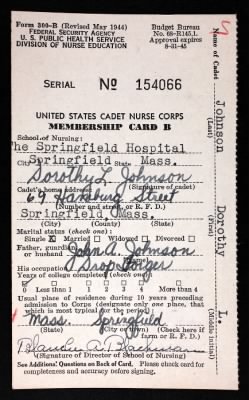 Form 300-B (Revised May 1944)
FEDERAL SECURITY AGENCY
U. S. PUBLIC HEALTH SERVICE
DIVISION OF NURSE EDUCATION
Budget Bureau
No. 68-R145.1.
Approval expires
8-31-45
SERIAL No 154066
UNITED STATES CADET NURSE CORPS
MEMBERSHIP CARD B
School of Nursing:
The Springfield Hospital
Springfield, Mass.
(City) State
Dorothy L. Johnson
Cadet's home address: (Signature of cadet)
Street
(Number and street, or R. F. D.)
Springfield, Mass.
(City) (County) (State)
Marital status (check one):
Single X Married Widowed Divorced
Father, guardian, or husband John A. Johnson
His occupation Drop Forger
Years of (check one):
0 Less than 1 1 2 3 More than 4
Usual place of residence during 10 years preceding
admission to Corps (designate only one place, that
which is most typical for the period):
Mass. Springfield
(State) (City or town) (Check here if
farm or R. F. D.)
Blanche A. Blackman
(Signature of Director of School of Nursing)
See Additional Questions on Back of Card. Please check card for
completeness and accuracy before signing.
Name of Cadet Johnson Dorothy L.
(Last) (First) (Middle initial)